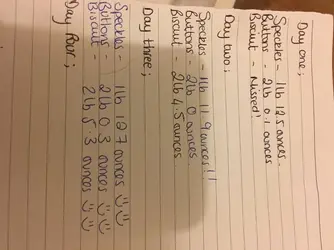 Day one;
Speckles - 1lb 12.5 ounces.
Buttons - 2lb 0.1 ounces
Biscuit - Missed!
Day two;
Speckles - 1lb 11.9 ounces!!
Buttons - 2lb 0 ounces
Biscuit - 2lb 4.5 ounces
Day three;
Speckles - 1lb 12.7 ounces
Buttons - 2lb 0.3 ounces
Biscuit - 2lb 5.3 ounces
Day four;